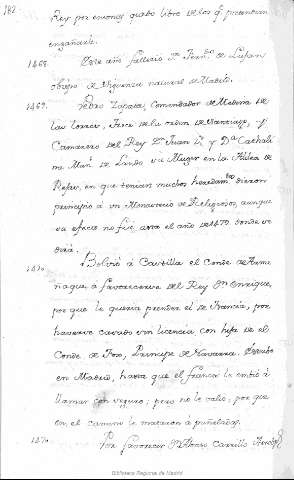 182
Rey por entonces quedo libre de los q.e pretendian
engañarle.
1468. Este año fallecio D.n Fern.do de Lujan
obispo de Siguenza natural de Madrid.
1469. Pedro Zapata, Comendador de Medina de
las torres, Trece de la orden de Santiago, y
Camarero del Rey D.n Juan 2.º y D.a Cathali
na Man.l de Lando su Muger en la Aldea de
Rejas, en que tenian muchos heredam.tos dieron
principio à un Monasterio de Religiosos, aunque
su efecto no fue asta el año de 1479. donde se
dirà.
1470. Bolviò à Castilla el Conde de Arme
ñaque à favorecerse del Rey D.n Enrique,
por que le queria prender el de Francia, por
haverse casado sin licencia con hija de el
Conde de Fox, Principe de Navarra. Estubo
en Madrid, hasta que el frances le embió à
llamar con seguro; pero no le valio; por que
en el camino le mataron à puñaladas.
1470. Por favorecer D.n Alonso Carrillo Arzobpô
Biblioteca Regional de Madrid